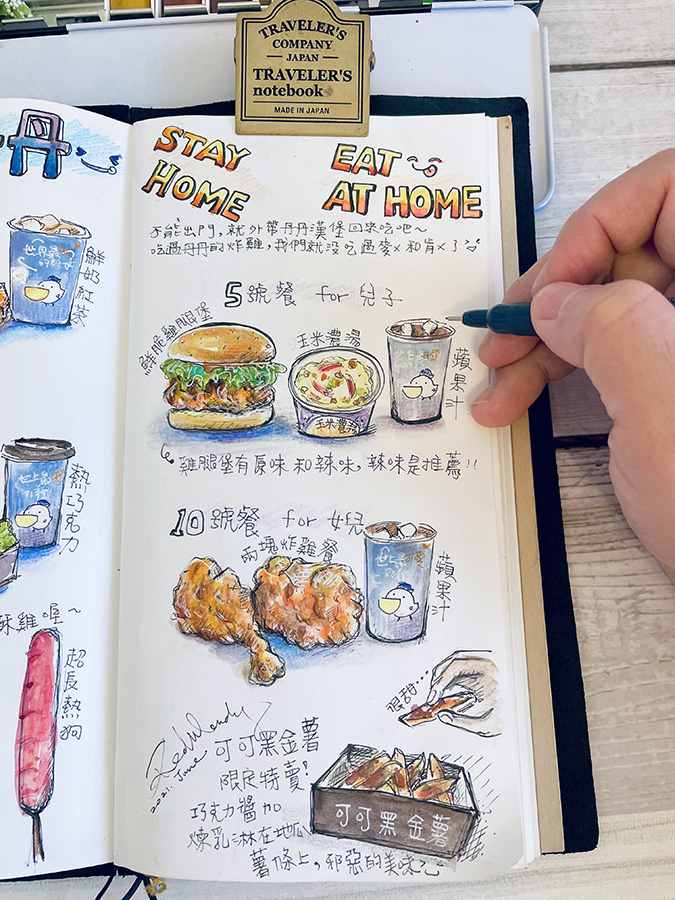 TRAVELER'S
COMPANY
JAPAN
TRAVELER'S
notebook
MADE IN JAPAN
STAY
HOME
EAT
AT HOME
不能出門,就外帶丹丹漢堡回來吃吧~
吃過丹丹的炸雞,我們就沒吃過麥x和肯x了
5號餐 for 兒子
鮮脆雞腿堡
玉米濃湯
玉米濃湯
蘋果汁
雞腿堡有原味和辣味,辣味是推薦!!
10號餐 for 女兒
兩塊炸雞餐
蘋果汁
很甜...
Red Wendy
2021. June
可可黑金薯
限定特賣!
巧克力醬加
煉乳淋在地瓜
薯條上,邪惡的美味
可可黑金薯
丹
鮮奶紅茶
熱巧克力
酥雞喔~
超長熱狗